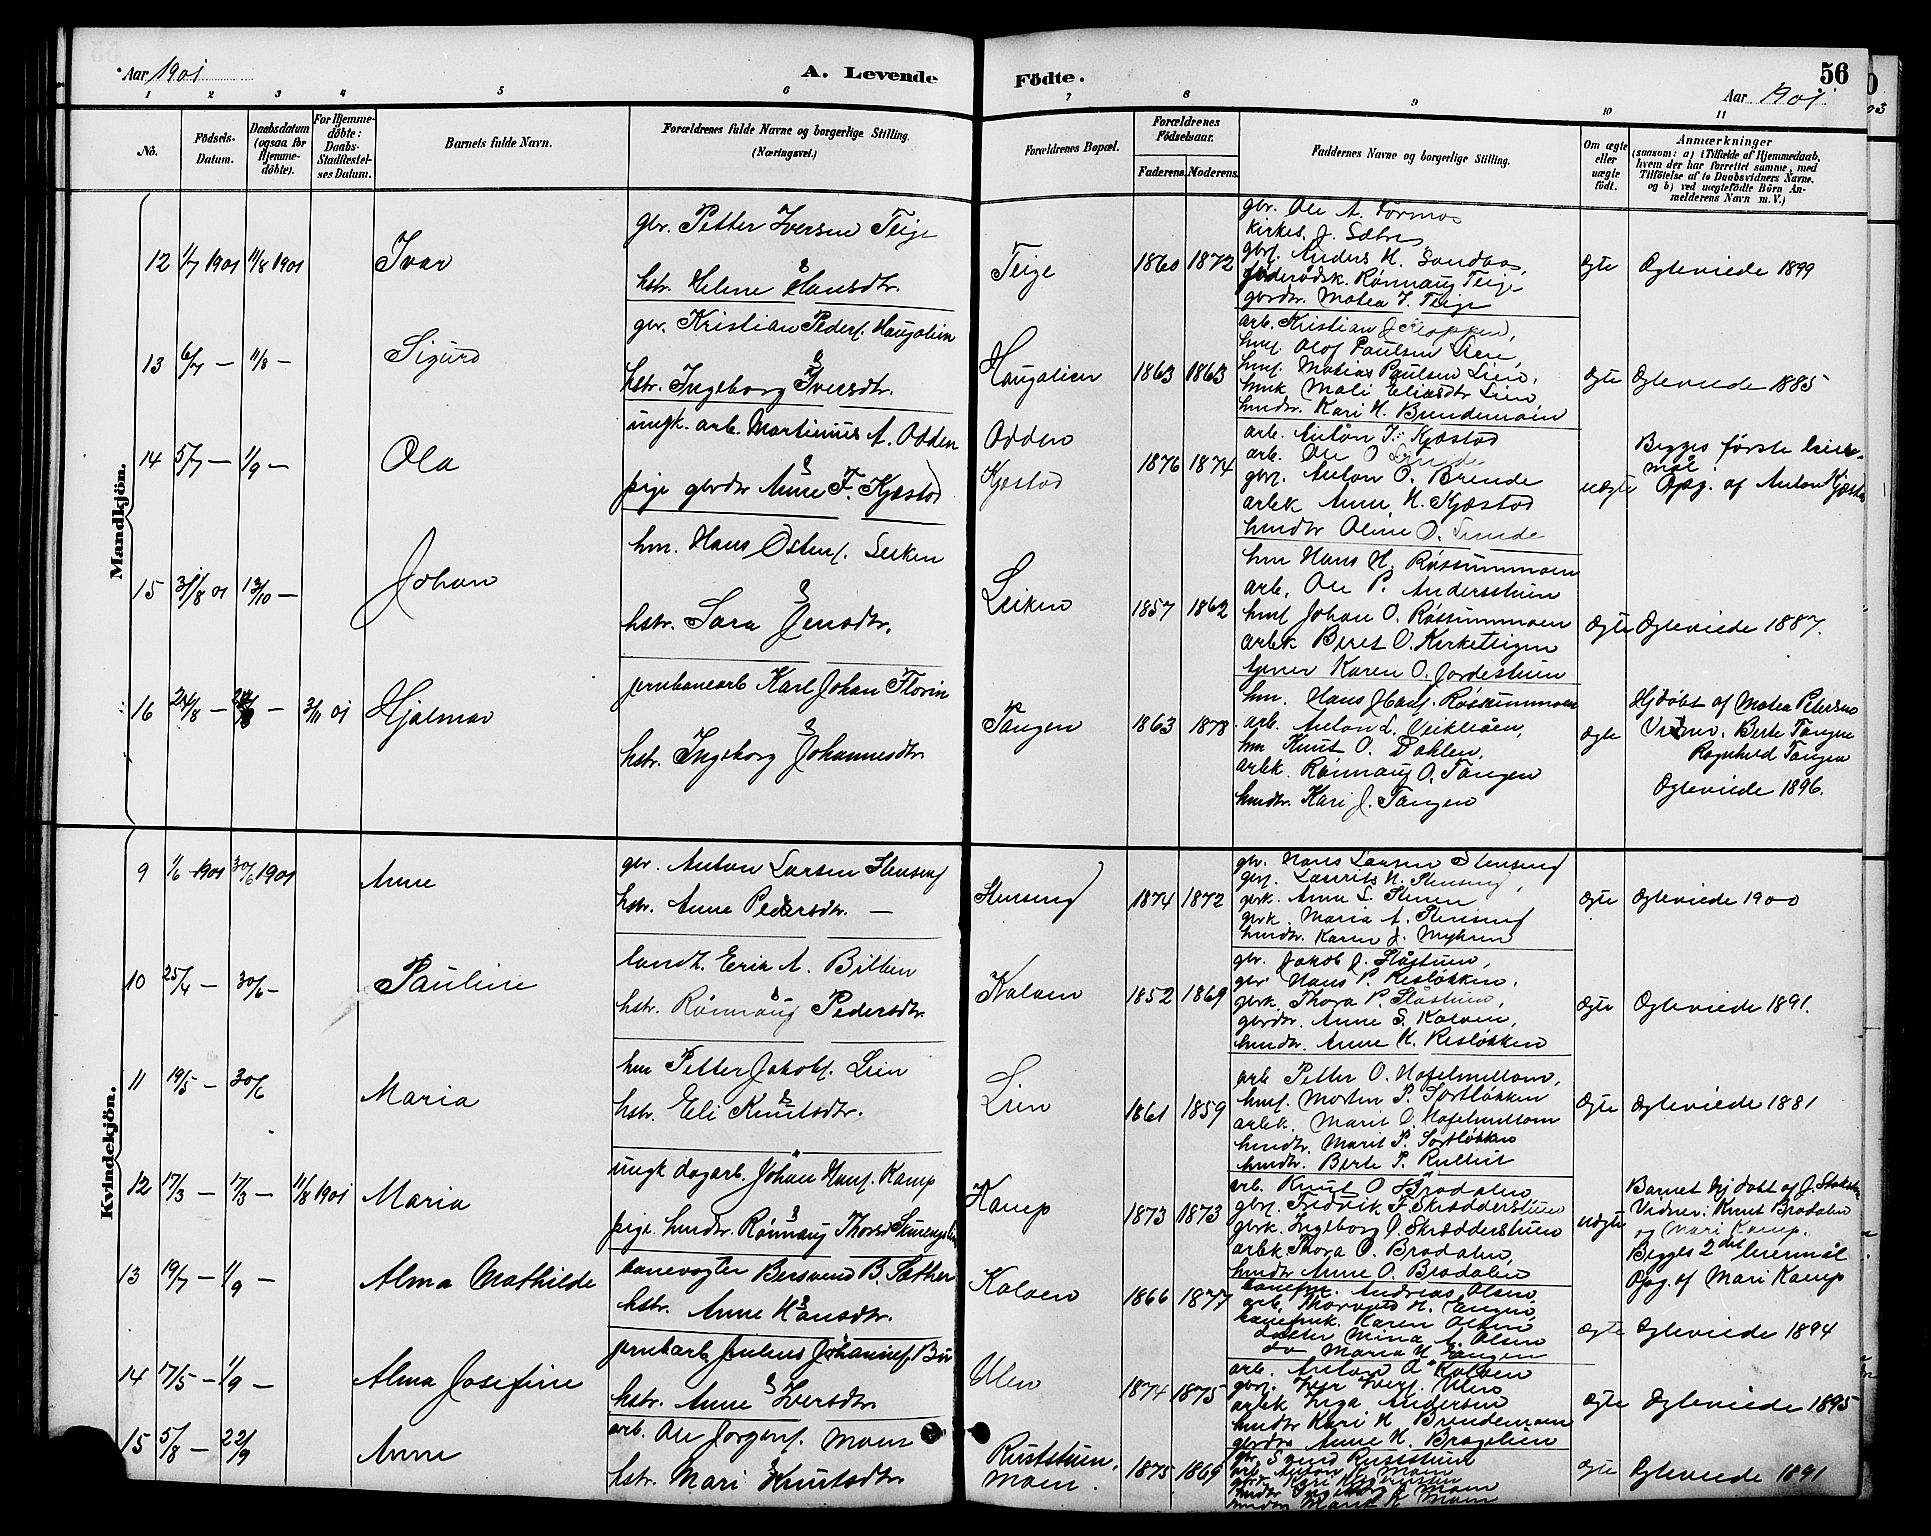 Aar 1901
A. Levende
Födte.
56
Aar 1901
1 2 3 4 5 6 7 8 9 10 11
No.
Födsels-Datum.
Daabsdatum (ogsaa for Hjemme-döbte).
For Hjemme-döbte: Daabs-Stadfæstel-ses Datum.
Barnets fulde Navn.
Forældrenes fulde Navne og borgerlige Stilling.
(Næringsvei.)
Forældrenes Bopæl.
Forældrenes Födselsaar.
Faderens. Moderens.
Faddernes Navne og borgerlige Stilling.
Om ægte eller uægte födt.
Anmærkninger
(saasom: a) i Tilfælde af Hjemmedaab, hvem der har forrettet samme, med Tilföielse af to Daabsvidners Navne, og b) ved uægtefödte Börn An-melderens Navn m. V.)
Mandkjön.
12 1/7 1901 11/8 1901 Ivar
gbr. Petter Iversen Teige
&
hstr. Helene Hansdtr.
Teige 1860 1872
gbr. Ole A. Formo
kirkes. J. Sæbø
gbrs. Anders H. Sandbo,
føderådsk. Rønnaug Teige
gbrdtr. Matea I. Teige
ægte Ægteviede 1899
13 6/7 — 11/8 — Sigurd
gbr. Kristian Peders. Haugalien
&
hstr. Ingeborg Iversdtr.
Haugalien 1863 1863
arb. Kristian J. Kloppen,
hms. Olof Paulsen Lien,
hms. Matias Paulsen Lien,
hmk Mali Eliasdtr Lien
hmdtr. Kari H. Brendemoen
ægte Ægteviede 1885
14 5/7 — 1/9 — Ola
ungk. arb. Martinius A. Odden
&
pige gbrdtr Anne F. Kjæstad
Odden
Kjæstad
1876 1874
arb. Anton F. Kjæstad
arb. Ole O. Lunde
gbrs. Anton O. Brende
arbk Anne H. Kjæstad
hmdtr Oline O. Lunde
uægte
Begges første leier-
mål.
Opg. af Anton Kjæstad
15 31/8 01 13/10 — Johan
hm. Hans Østens. Leiken
&
hstr. Sara Jensdtr.
Leiken 1857 1862
hm Hans H. Røssummoen
arb. Ole P. Andersstuen
hms Johan O. Røssummoen
arbk Beret O. Kirketeigen
Karen O. Jordestuen
ægte Ægteviede 1887.
16 24/8 — 3/11 01 Hjalmar
jernbanearb Karl Johan Florin
&
hstr. Ingeborg Johannesdtr.
Tangen 1863 1878
hm. Hans Hans. Røssummoen
arb. Anton L. Veikleåen,
hm Knut O. Dahlen,
arbk. Rønnaug O. Tangen
hmdtr. Kari J. Tangen
ægte
Hjdøbt af Matea Petersen
Vidner. Berte Tangen
Ragnhild Tangen
Ægteviede 1896.
Kvindekjön.
9 1/6 1901 30/6 1901 Anne
gbr. Anton Larsen Stenseng
hstr. Anne Pedersdtr. —
Stenseng 1874 1872
gbr. Hans Larsen Stenseng
gbrs. Laurits H. Stenseng,
gbrk. Anne L. Stenen
gbrk. Maria A. Stenseng
hmdtr. Karen J. Myhren
ægte Ægteviede 1900
10 25/4 — 30/6 — Pauline
landh. Erik A. Bilben
&
hstr. Rønnaug Pedersdtr.
Kalven 1852 1869
gbr. Jakob J. Slåstuen,
gbr Hans P. Risløkken,
gbrk Thora P. Slåstuen,
gbrdtr. Anne S. Kalven,
hmdtr. Anne H. Risløkken
ægte Ægteviede 1891.
11 19/5 — 30/6 Maria
hm Petter Jakobs. Lien
&
hstr. Eli Knutsdtr.
Lien 1861 1859
arb Petter O. Hafelmellom,
hms. Morten P. Sortløkken
arbk. Marit O. Hafelmellom
hmdtr. Marit P. Sortløkken
hmdtr. Berte P.
ægte Ægteviede 1881
12 17/3 — 17/3 — 11/8 1901 Maria
ungk dagarb. Johan Hans. Kamp
&
pige hmdtr. Rønnaug Thorsd
Kamp 1873 1873
arb. Knut O Brodalen
gbrs. Fredrik F. Skrædderstuen
gbrk Ingeborg O. Skrædderstuen
arbk Thora O. Brodalen,
hmdtr Anne O. Brodalen
uægte
Barnet hjdøbt af J.
Vidner: Knut Brodalen
og Mari Kamp.
Begges 2det leiermål
Opg. af Mari Kamp
13 19/7 — 1/9 — Alma Mathilde
banevogter Bersvend B. Sæther
&
hstr. Anne Hansdtr.
Kalven 1866 1877
Andreas Olsen,
arb. Thorvald H. Tangen
Karen Olsen
datter Mina A. Olsen
do Maria H. Tangen
ægte Ægteviede 1894
14 17/5 — 1/9 — Alma Josefine
jernbarb. Julius Johannes. Bu
&
hstr. Anne Iversdtr.
Ulen 1874 1875
arb. Anton A. Kalven
gbrs. Iver Ivers. Ulen
arbk Inga Andersen
hmdtr Kari H. Brendemoen
gbrdtr Anne H. Bragelien
ægte Ægteviede 1895
15 5/8 — 22/9 Anne
arb. Ole Jørgens. Moen
&
hstr. Mari Knutsdtr.
Ruststuen,
Moen.
1875 1869
gbr. Svend Ruststuen
arb. Anton K. Moen
hmdtr Ingeborg J. Moen
hmdtr Marit K. Moen
ægte Ægteviede 1891